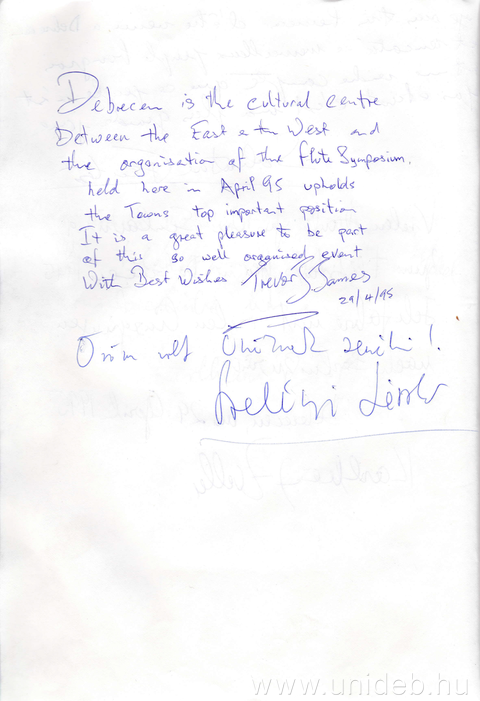 Debrecen is the cultural centre
Between the East & the West and
the organisation of the Flute Symposium.
held here in April 95 upholds
the Towns top important position
It is a great pleasure to be part
of this so well organised event
With Best Wishes Trevor J. James
29/4/95
Öröm volt Önöknek zenélni!
László
www.unideb.hu